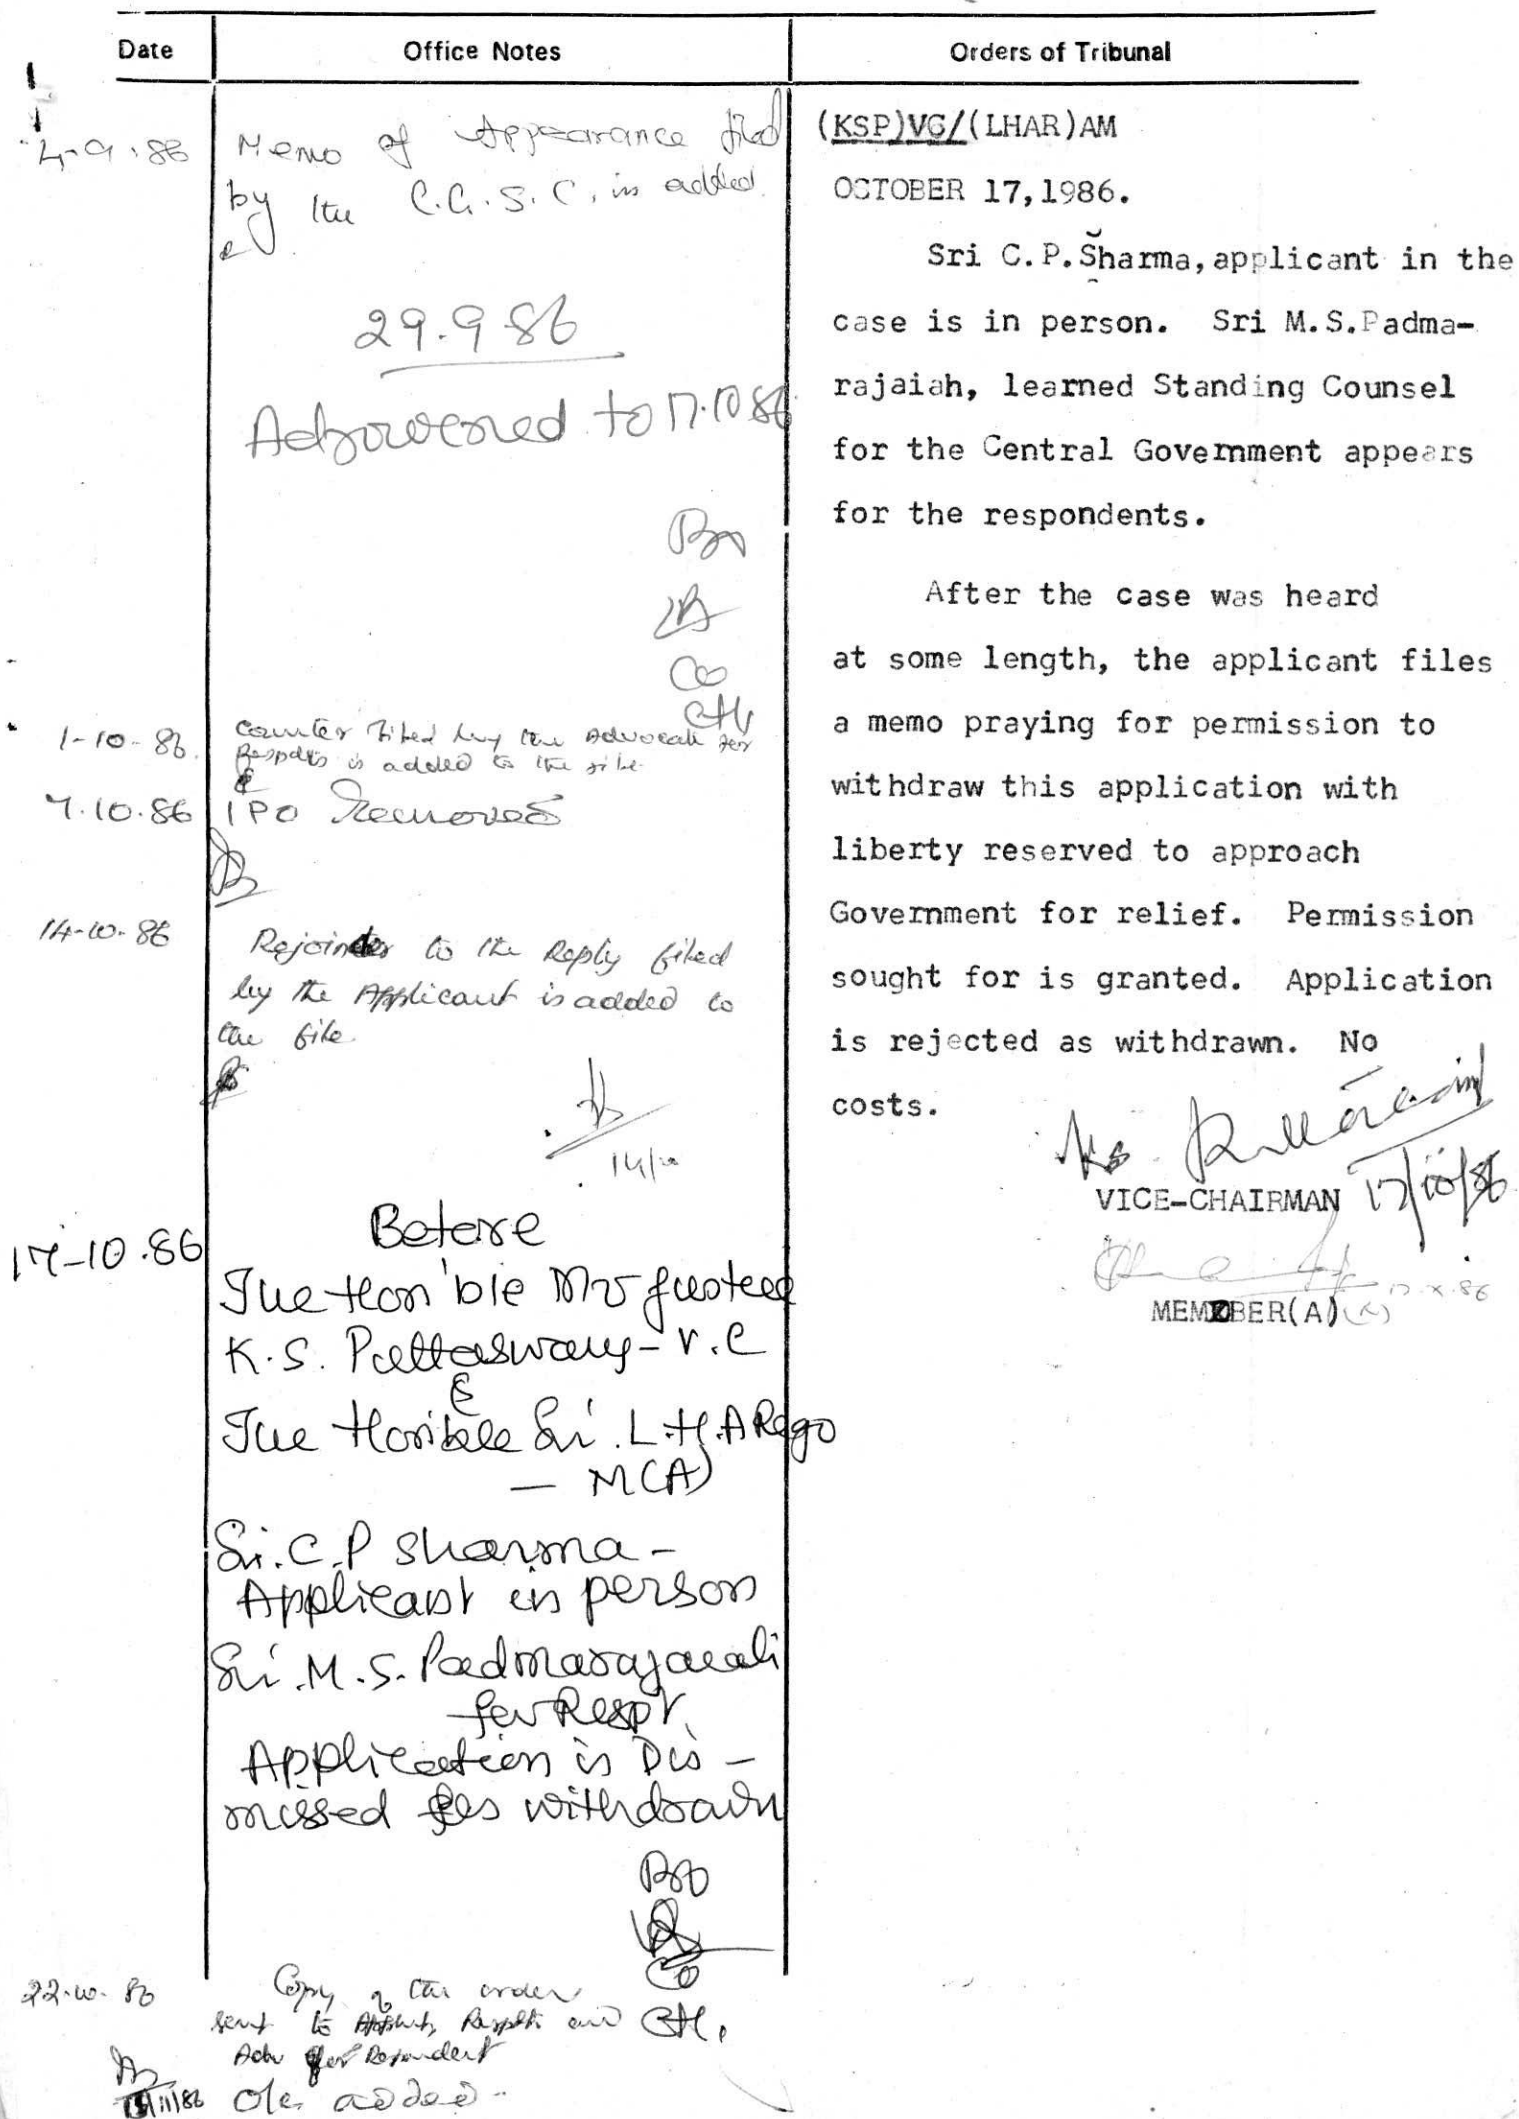 Date Office Notes Orders of Tribunal
4-9-86 Memo of Appearance filed
by the C.G.S.C. is added.
29.9.86
Adjourned to 17.10.86
BO
CO
CH.
1-10-86 Counter filed by the Advocate for
Respdts is added to the file
7.10.86 IPO removed
14-10-86 Rejoinder to the Reply filed
by the Applicant is added to
the file.
14/10
17-10.86 Before
The Hon'ble Mr Justice
K.S. Puttaswamy - V.C
&
The Hon'ble Sri. L.H.A Rego
- M(A)
Sri. C.P Sharma -
Applicant in person
Sri. M.S. Padmarajaiah
for Respt.
Application is Dis -
missed as withdrawn
BO
CO
CH.
22-10-86 Copy of the order
sent to Applt, Respdts and
Adv for Respondent
O/c added -
(KSP)VC/(LHAR)AM
OCTOBER 17,1986.
Sri C.P.Sharma, applicant in the
case is in person. Sri M.S.Padma-
rajaiah, learned Standing Counsel
for the Central Government appears
for the respondents.
After the case was heard
at some length, the applicant files
a memo praying for permission to
withdraw this application with
liberty reserved to approach
Government for relief. Permission
sought for is granted. Application
is rejected as withdrawn. No
costs.
VICE-CHAIRMAN 17/10/86
17.X.86
MEMBER(A)